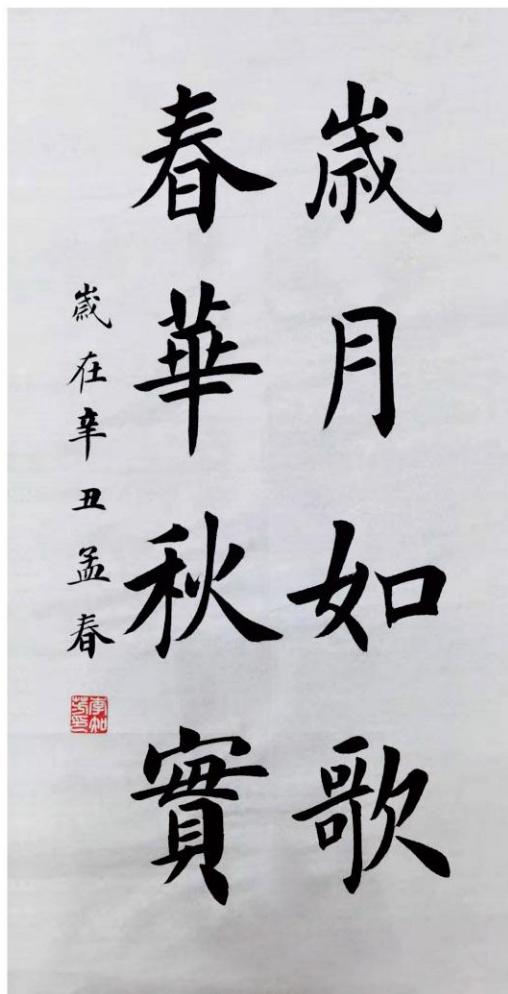 歲月如歌
春華秋實
歲在辛丑孟春